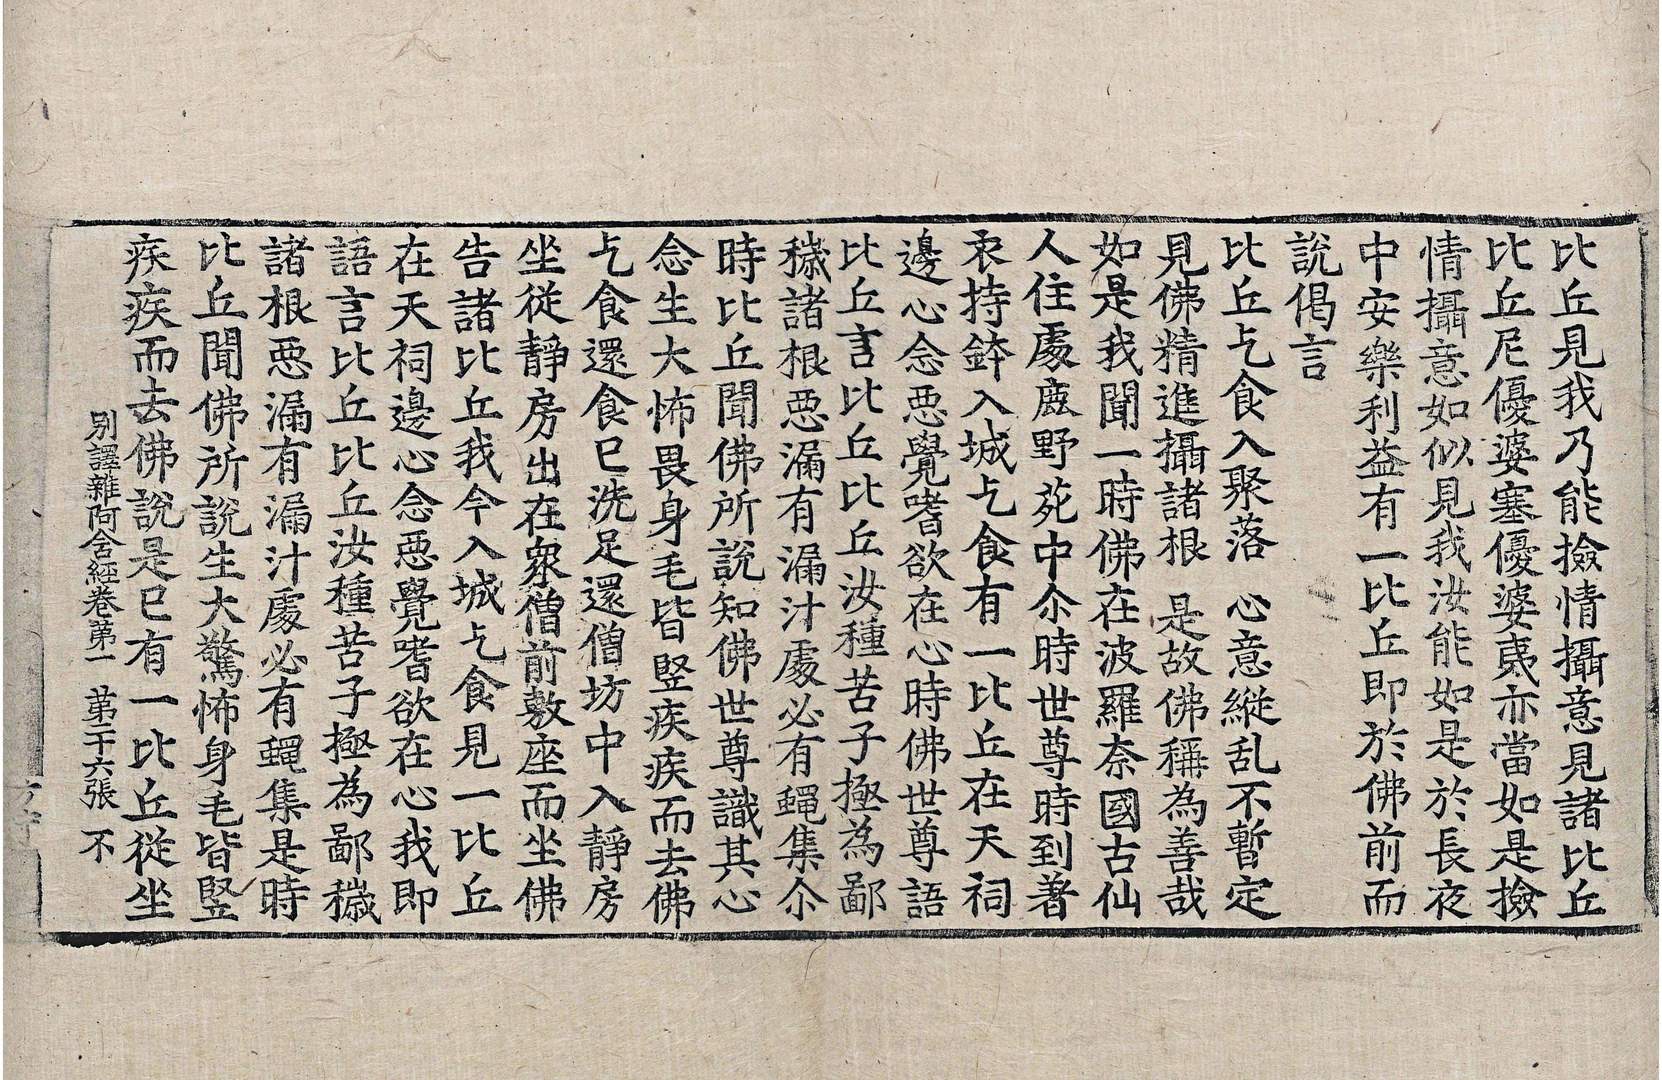 比丘見我乃能撿情攝意見諸比丘
比丘尼優婆塞優婆夷亦當如是撿
情攝意如似見我汝能如是於長夜
中安樂利益有一比丘即於佛前而
說偈言
比丘乞食入聚落　心意縱乱不暫定
見佛精進攝諸根　是故佛稱為善哉
如是我聞一時佛在波羅奈國古仙
人住處鹿野苑中尒時世尊時到著
衣持鉢入城乞食有一比丘在天祠
邊心念惡覺嗜欲在心時佛世尊語
比丘言比丘比丘汝種苦子極為鄙
穢諸根惡漏有漏汁處必有蠅集尒
時比丘聞佛所說知佛世尊識其心
念生大怖畏身毛皆竪疾疾而去佛
乞食還食已洗足還僧坊中入靜房
坐從靜房出在衆僧前敷座而坐佛
告諸比丘我今入城乞食見一比丘
在天祠邊心念惡覺嗜欲在心我即
語言比丘比丘汝種苦子極為鄙穢
諸根惡漏有漏汁處必有蠅集是時
比丘聞佛所說生大驚怖身毛皆竪
疾疾而去佛說是已有一比丘從坐
別譯雜阿含經卷第一　第十六張　不